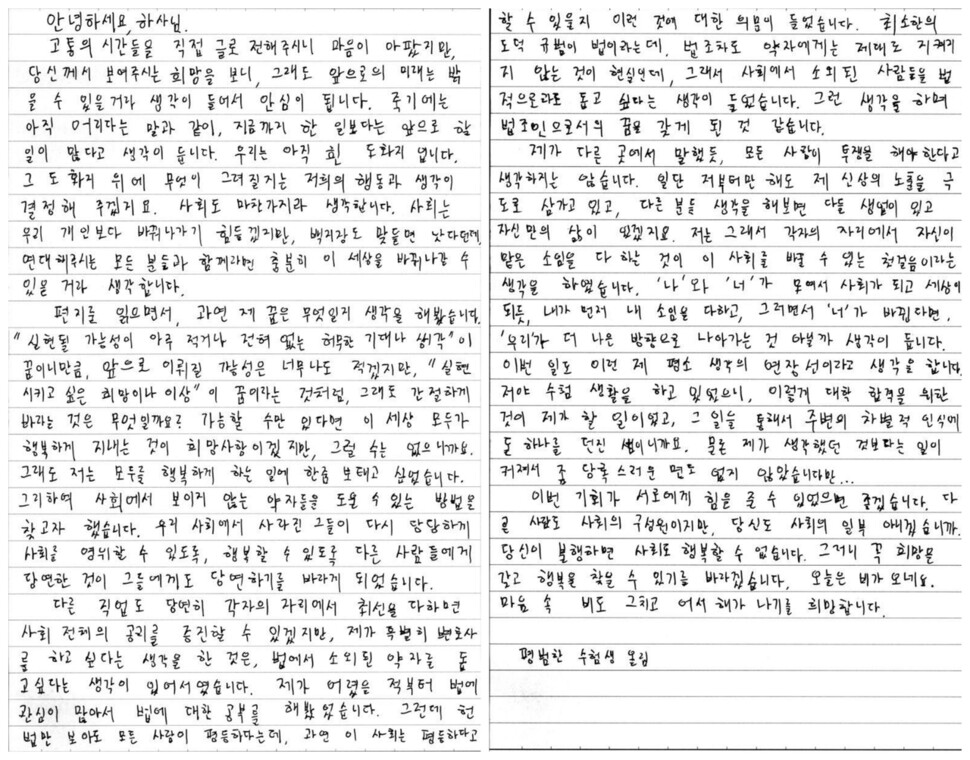 안녕하세요, 하사님.
고통의 시간들을 직접 글로 전해주시니 마음이 아팠지만,
당신께서 보여주시는 희망을 보니, 그래도 앞으로의 미래는 밝
을 수 있을거라 생각이 들어서 안심이 됩니다. 죽기에는
아직 어리다는 말과 같이, 지금까지 한 일보다는 앞으로 할
일이 많다고 생각이 듭니다. 우리는 아직 흰 도화지 입니다.
그 도화지 위에 무엇이 그려질지는 저희의 행동과 생각이
결정해 주겠지요. 사회도 마찬가지라 생각합니다. 사회는
우리 개인보다 바꿔나가기 힘들겠지만, 백지장도 맞들면 낫다던데,
연대해주시는 모든 분들과 함께라면 충분히 이 세상을 바꿔나갈 수
있을 거라 생각합니다.
편지를 읽으면서, 과연 제 꿈은 무엇일지 생각을 해봤습니다.
"실현될 가능성이 아주 적거나 전혀 없는 허무한 기대나 생각"이
꿈이니만큼, 앞으로 이뤄질 가능성은 너무나도 적겠지만, "실현
시키고 싶은 희망이나 이상"이 꿈이라는 것처럼, 그래도 간절하게
바라는 것은 무엇일까요? 가능할 수만 있다면 이 세상 모두가
행복하게 지내는 것이 희망사항이겠지만, 그럴 수는 없으니까요.
그래도 저는 모두를 행복하게 하는 일에 한줌 보태고 싶었습니다.
그리하여 사회에서 보이지 않는 약자들을 도울 수 있는 방법을
찾고자 했습니다. 우리 사회에서 사라진 그들이 다시 당당하게
사회를 영위할 수 있도록, 행복할 수 있도록 다른 사람들에게
당연한 것이 그들에게도 당연하기를 바라게 되었습니다.
다른 직업도 당연히 각자의 자리에서 최선을 다하면
사회 전체의 공리를 증진할 수 있겠지만, 제가 특별히 변호사
를 하고 싶다는 생각을 한 것은, 법에서 소외된 약자를 돕
고싶다는 생각이 있어서였습니다. 제가 어렸을 적부터 법에
관심이 많아서 법에 대한 공부를 해봤었습니다. 그런데 헌
법만 보아도 모든 사람이 평등하다는데, 과연 이 사회는 평등하다고
할 수 있을지 이런 것에 대한 의문이 들었습니다. 최소한의
도덕 규범이 법이라는데, 법조차도 약자에게는 제대로 지켜지
지 않는 것이 현실인데, 그래서 사회에서 소외된 사람들을 법
적으로라도 돕고 싶다는 생각이 들었습니다. 그런 생각을 하며
법조인으로서의 꿈을 갖게 된 것 같습니다.
제가 다른 곳에서 말했듯, 모든 사람이 투쟁을 해야한다고
생각하지는 않습니다. 일단 저부터만 해도 제 신상의 노출을 극
도로 삼가고 있고, 다른 분들 생각을 해보면 다들 생업이 있고
자신만의 삶이 있겠지요. 저는 그래서 각자의 자리에서 자신이
맡은 소임을 다 하는 것이 이 사회를 바꿀 수 있는 첫걸음이라는
생각을 하였습니다. '나'와 '너'가 모여서 사회가 되고 세상이
되듯, 내가 먼저 내 소임을 다하고, 그러면서 '너'가 바뀐다면,
'우리'가 더 나은 방향으로 나아가는 것 아닐까 생각이 듭니다.
이번 일도 이런 제 평소 생각의 연장선이라고 생각을 합니다.
저야 수험 생활을 하고 있었으니, 이렇게 대학 합격을 위한
것이 제가 할 일이었고, 그 일을 통해서 주변의 차별적 인식에
돌 하나를 던진 셈이니까요. 물론 제가 생각했던 것보다는 일이
커져서 좀 당혹스러운 면도 없지 않았습니다만...
이번 기회가 서로에게 힘을 줄 수 있었으면 좋겠습니다. 다
른 사람도 사회의 구성원이지만, 당신도 사회의 일부 아니겠습니까.
당신이 불행하면 사회도 행복할 수 없습니다. 그러니 꼭 희망을
갖고 행복을 찾을 수 있기를 바라겠습니다. 오늘은 비가 오네요.
마음 속 비도 그치고 어서 해가 나기를 희망합니다.
평범한 수험생 올림